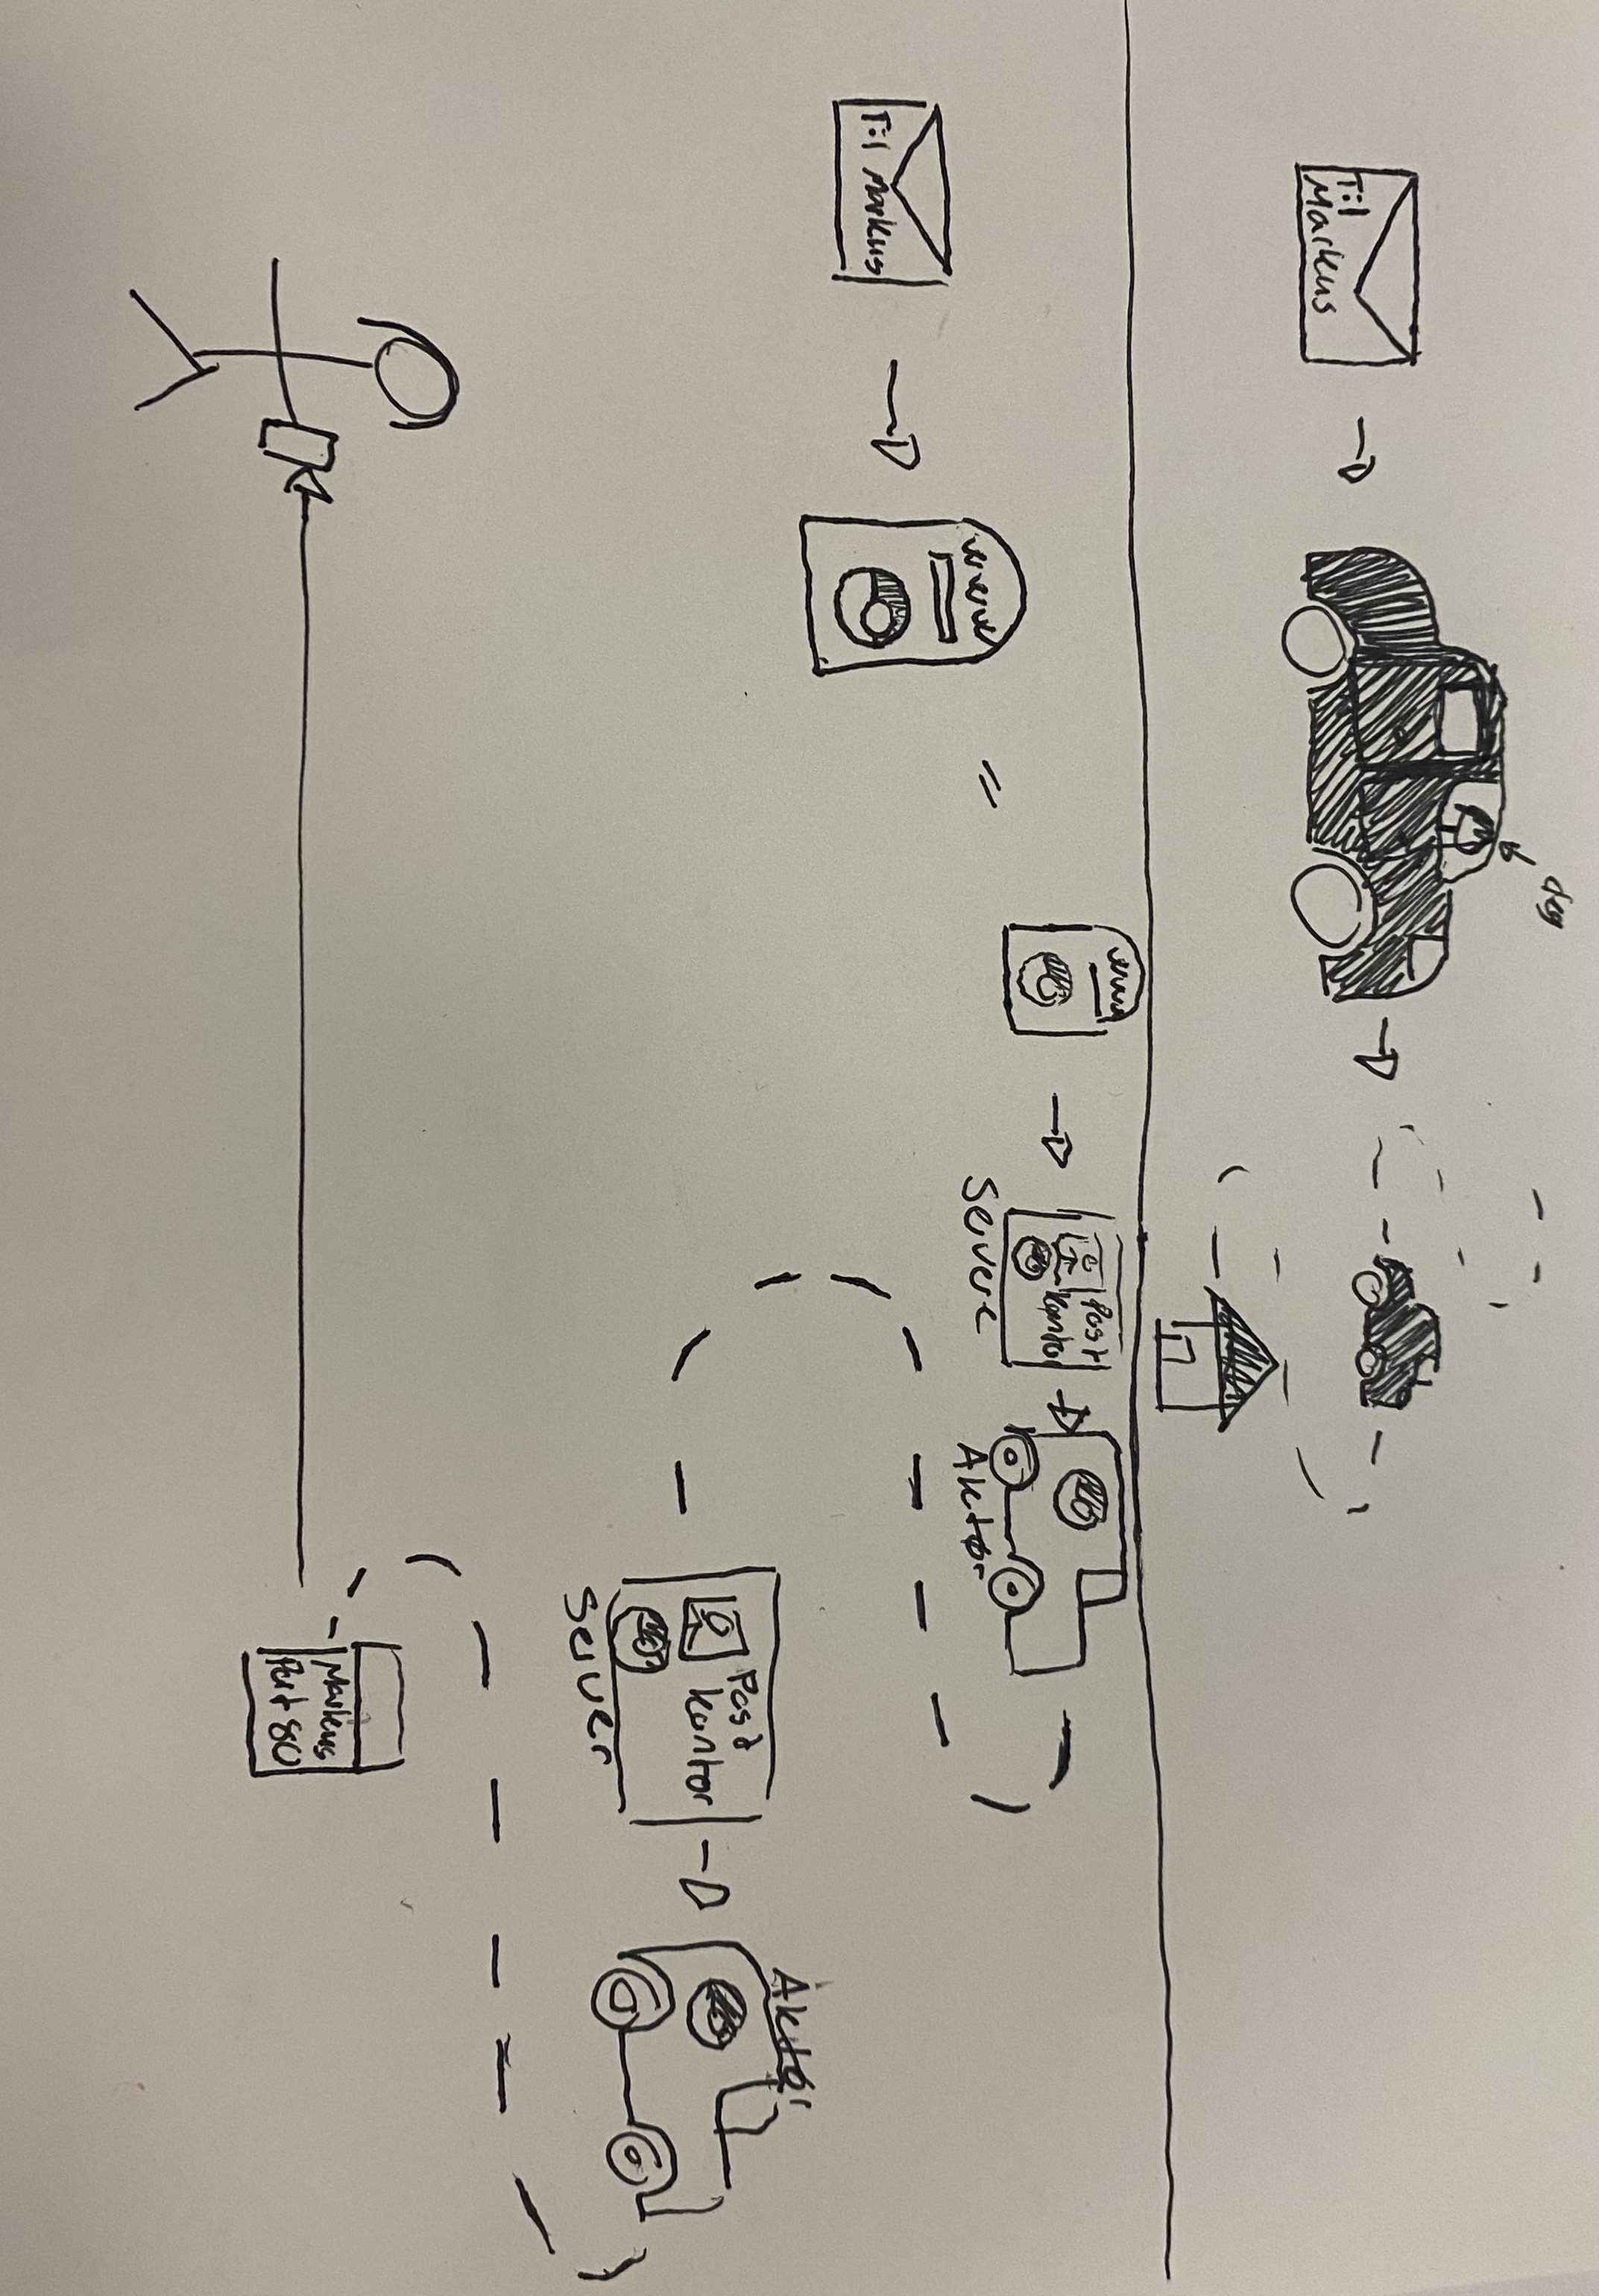 Til
Markus
deg
Til Markus
Post
kontor
Servere
Aktør
Post
kontor
Server
Aktør
Markus
Port 80